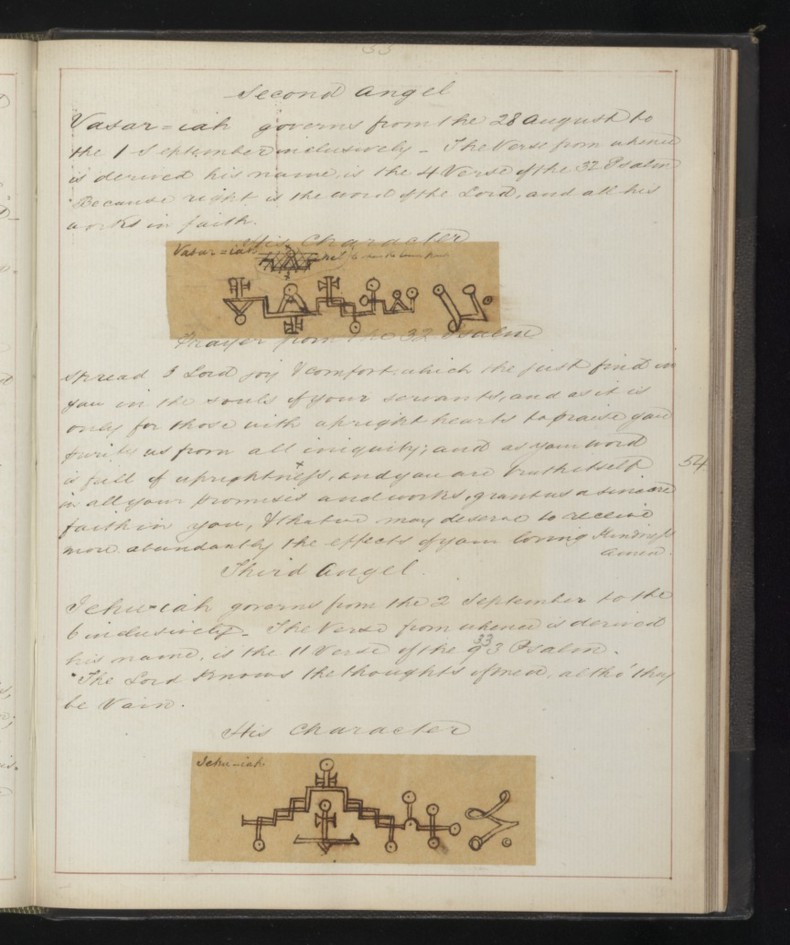 33
Second Angel
Vasar=iah governs from the 28 August to
the 1 September inclusively - The Verse from whence
is derived his name, is the 4 Verse of the 32 Psalm
"Because right is the word of the Lord, and all his
works in faith.
His Character
Vasar=iah
Prayer from the 32 Psalm
Spread O Lord joy & comfort which the just find in
you in the souls of your servants, and as it is
only for those with upright hearts to praise you
purify us from all iniquity; and as your word
is full of uprightness, and you are truth itself
in all your promises and works, grant us a sincere
faith in you, & that we may deserve to receive
more abundantly the effects of your loving Kindness
amen.
54
Third Angel.
Iehu=iah governs from the 2 September to the
6 inclusively - The Verse from whence is derived
his name, is the 11 Verse of the 93 Psalm.
33
"The Lord Knows the thoughts of men, altho' they
be Vain.
His Character
Iehu=iah